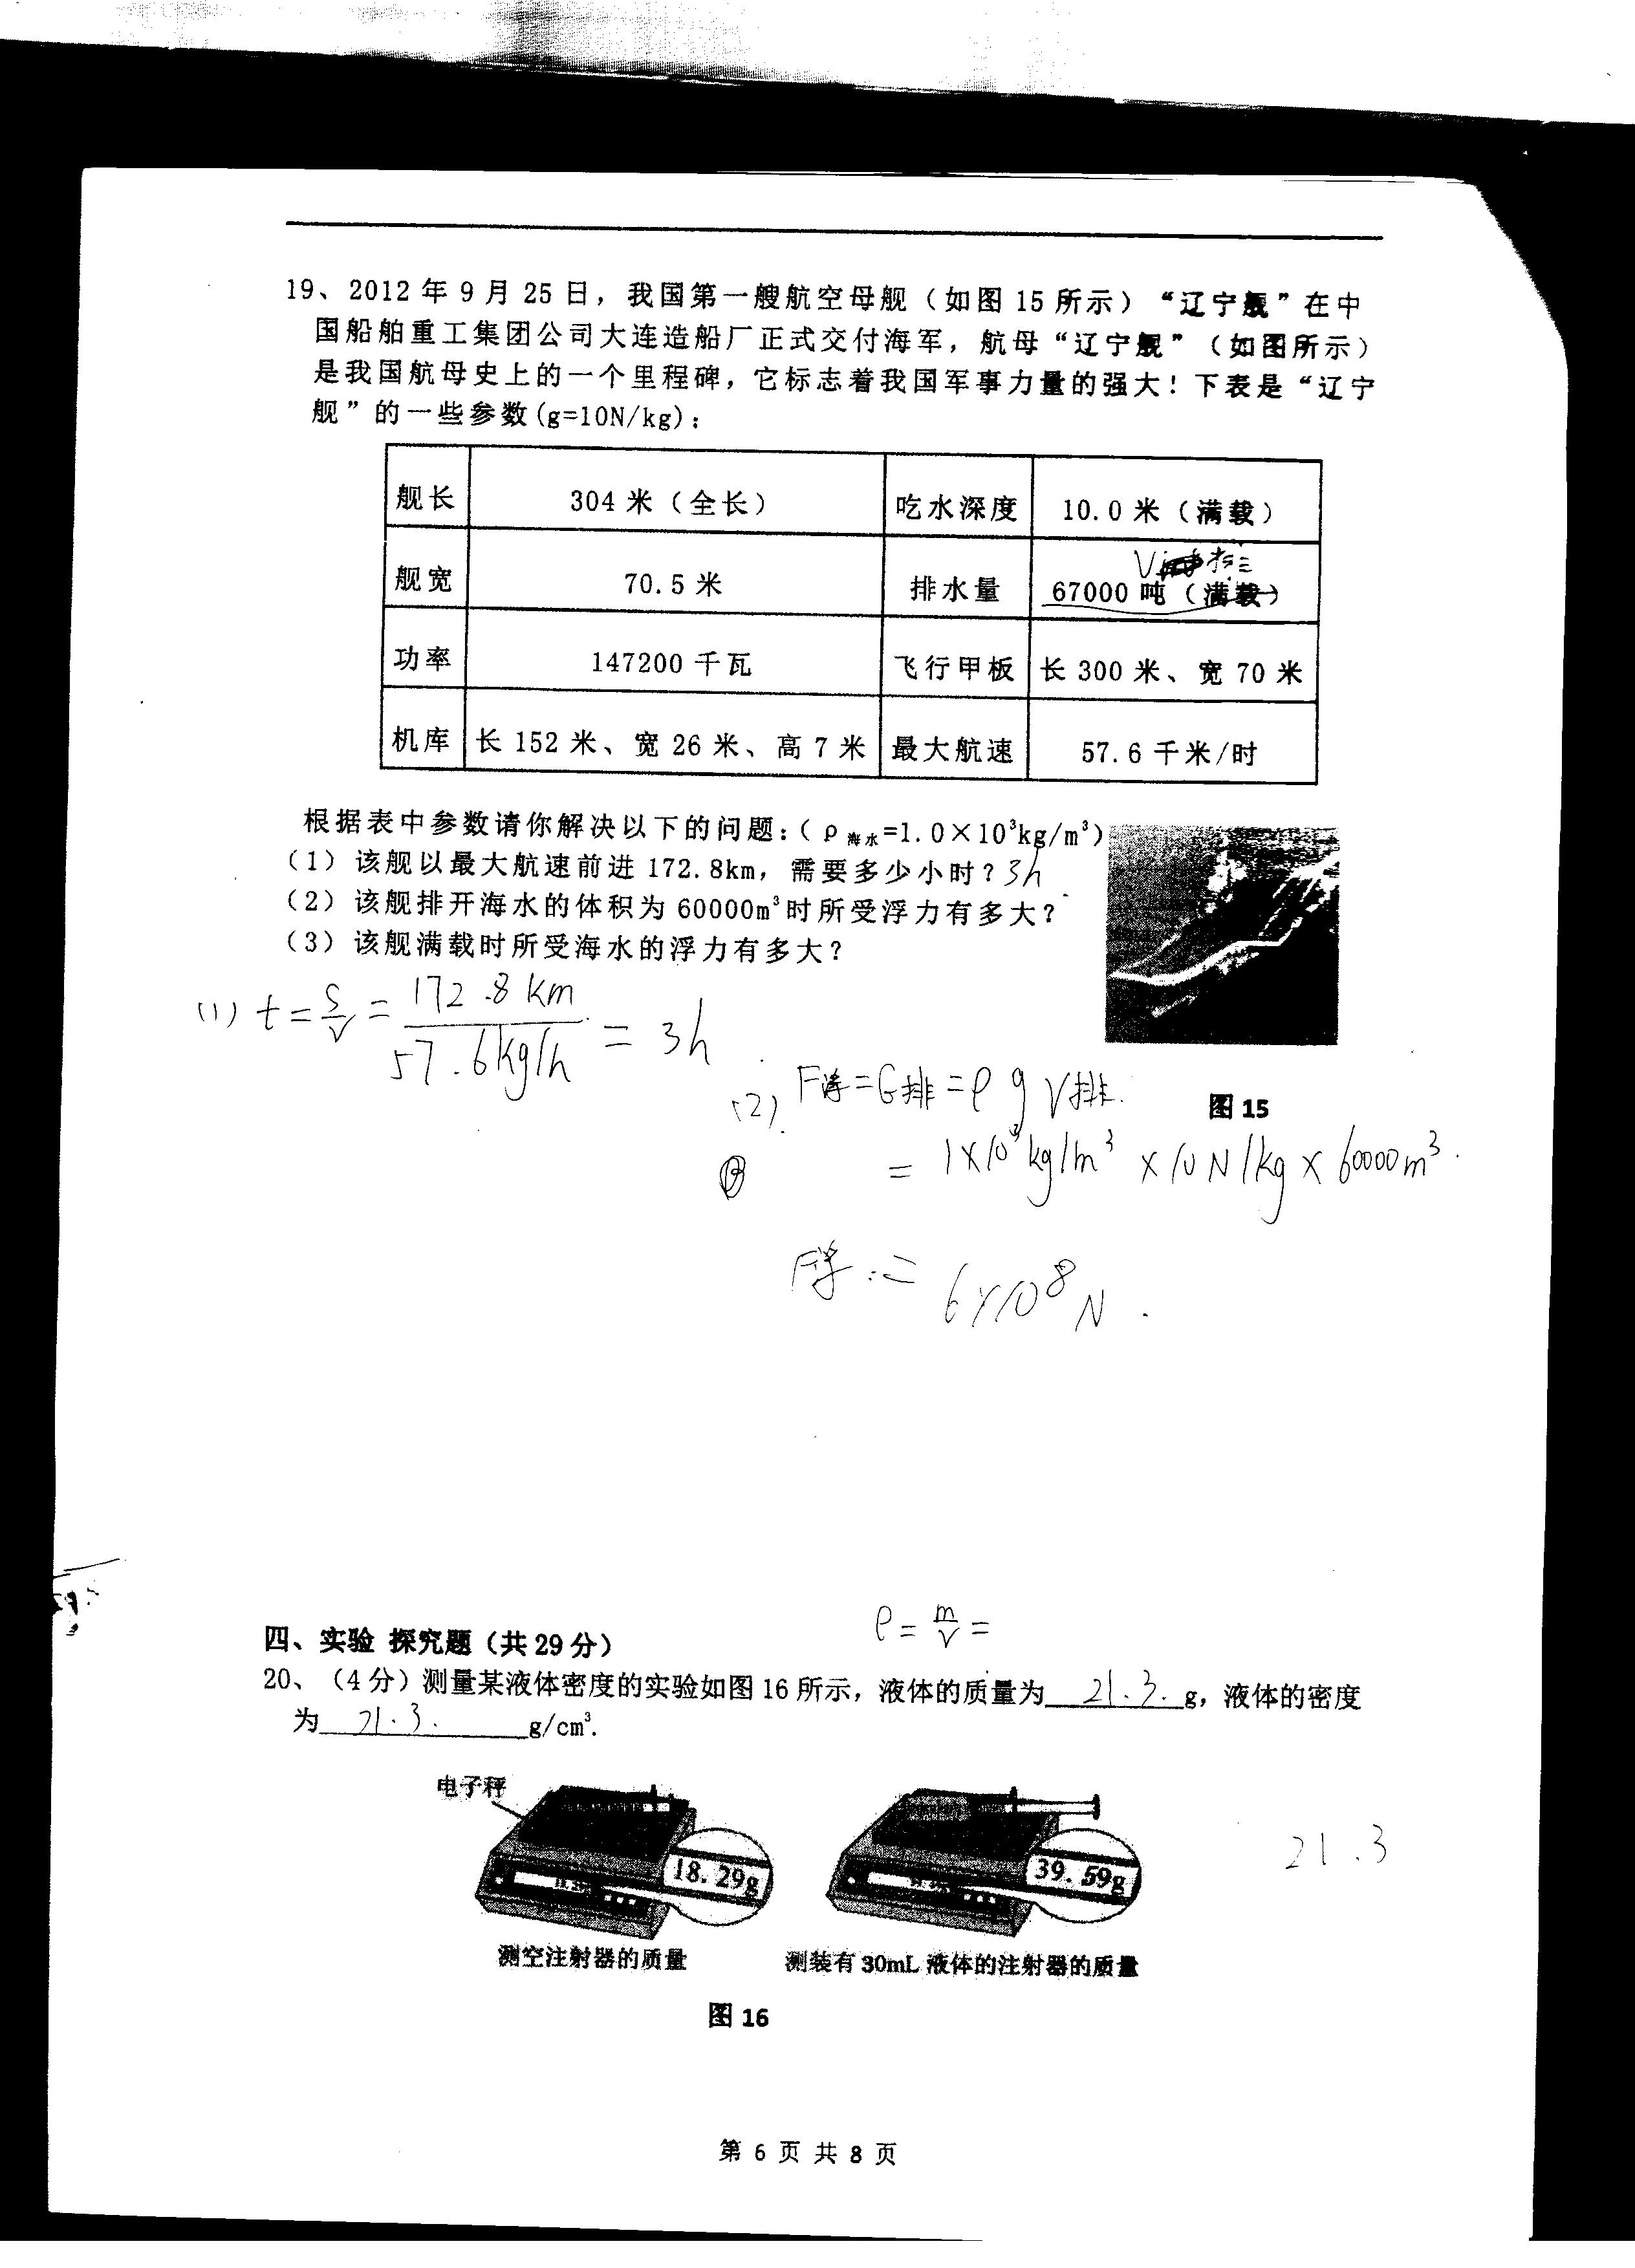 19、2012 年 9 月 25 日，我国第一艘航空母舰（如图 15 所示）“辽宁舰”在中
国船舶重工集团公司大连造船厂正式交付海军，航母“辽宁舰”（如图所示）
是我国航母史上的一个里程碑，它标志着我国军事力量的强大！下表是“辽宁
舰”的一些参数(g=10N/kg)：
舰长 304 米（全长） 吃水深度 10.0 米（满载）
V排
舰宽 70.5 米 排水量 67000 吨（满载）
功率 147200 千瓦 飞行甲板 长 300 米、宽 70 米
机库 长 152 米、宽 26 米、高 7 米 最大航速 57.6 千米/时
根据表中参数请你解决以下的问题：(ρ海水=1.0×10³kg/m³)
（1）该舰以最大航速前进 172.8km，需要多少小时？3h
（2）该舰排开海水的体积为 60000m³时所受浮力有多大？
（3）该舰满载时所受海水的浮力有多大？
(1) t = s/v = 172.8 km / 57.6kg/h = 3h
(2). F浮=G排=ρ g V排.
= 1×10³ kg/m³ × 10 N/kg × 60000m³.
F浮 = 6×10⁸ N.
图 15
ρ = m/v =
四、实验 探究题（共 29 分）
20、（4 分）测量某液体密度的实验如图 16 所示，液体的质量为 21.3. g，液体的密度
为 21.3. g/cm³.
电子秤
18.29g
39.59g
21.3
测空注射器的质量
测装有 30mL 液体的注射器的质量
图 16
第 6 页 共 8 页